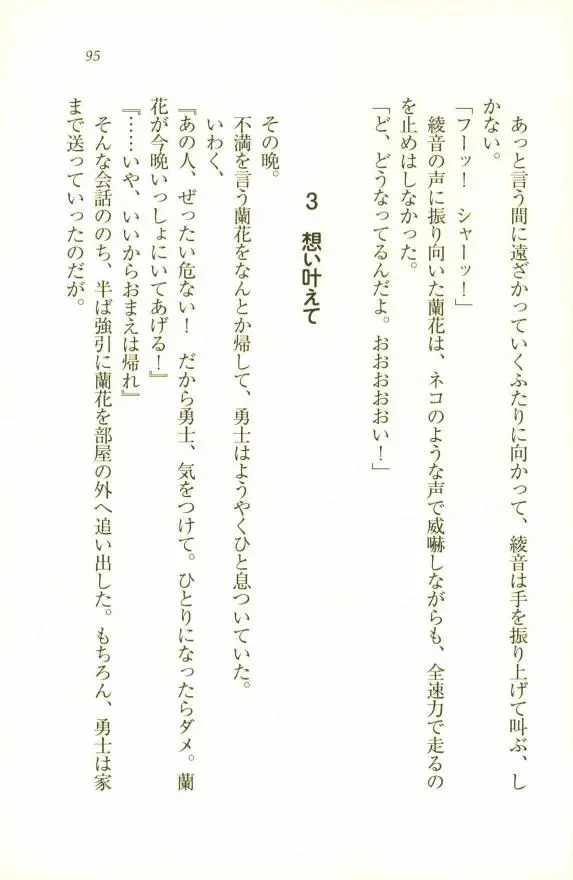 95
あっと言う間に遠ざかっていくふたりに向かって、綾音は手を振り上げて叫ぶ、し
かない。
「フーッ！　シャーッ！」
綾音の声に振り向いた蘭花は、ネコのような声で威嚇しながらも、全速力で走るの
を止めはしなかった。
「ど、どうなってるんだよ。おおおおおい！」
3　想い叶えて
その晩。
不満を言う蘭花をなんとか帰して、勇士はようやくひと息ついていた。
いわく、
『あの人、ぜったい危ない！　だから勇士、気をつけて。ひとりになったらダメ。蘭
花が今晩いっしょにいてあげる！』
『……いや、いいからおまえは帰れ』
そんな会話ののち、半ば強引に蘭花を部屋の外へ追い出した。もちろん、勇士は家
まで送っていったのだが。